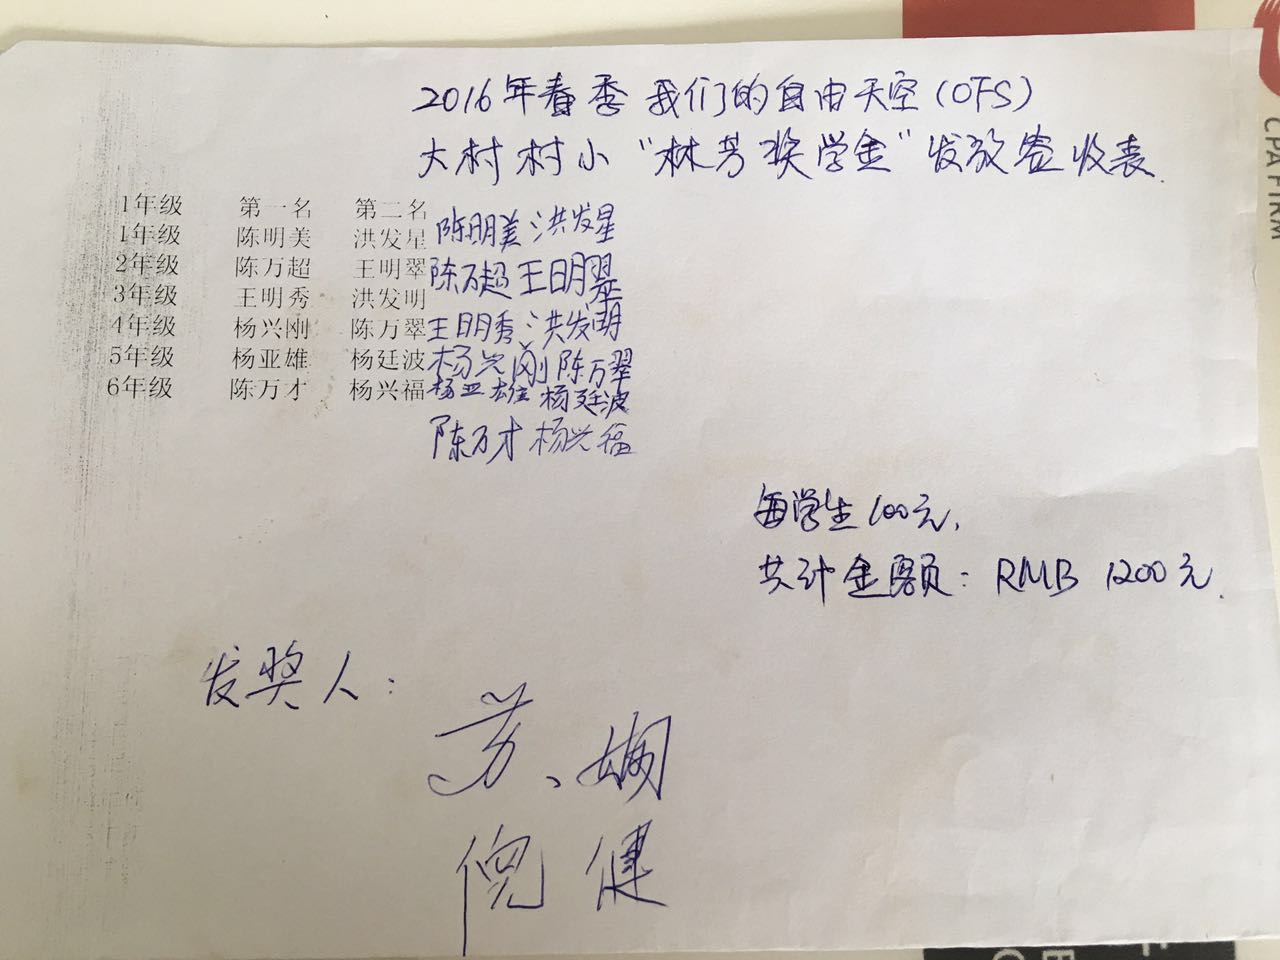 2016年春季 我们的自由天空(OFS)
大村村小“林芳奖学金”发放签收表.
1年级 第一名 第二名
1年级 陈明美 洪发星 陈明美 洪发星
2年级 陈万超 王明翠 陈万超 王明翠
3年级 王明秀 洪发明 王明秀 洪发明
4年级 杨兴刚 陈万翠 杨兴刚 陈万翠
5年级 杨亚雄 杨廷波 杨亚雄 杨廷波
6年级 陈万才 杨兴福 陈万才 杨兴福
每学生100元.
共计金额: RMB 1200元.
发奖人:
苏、娴
倪健
CPA FIRM